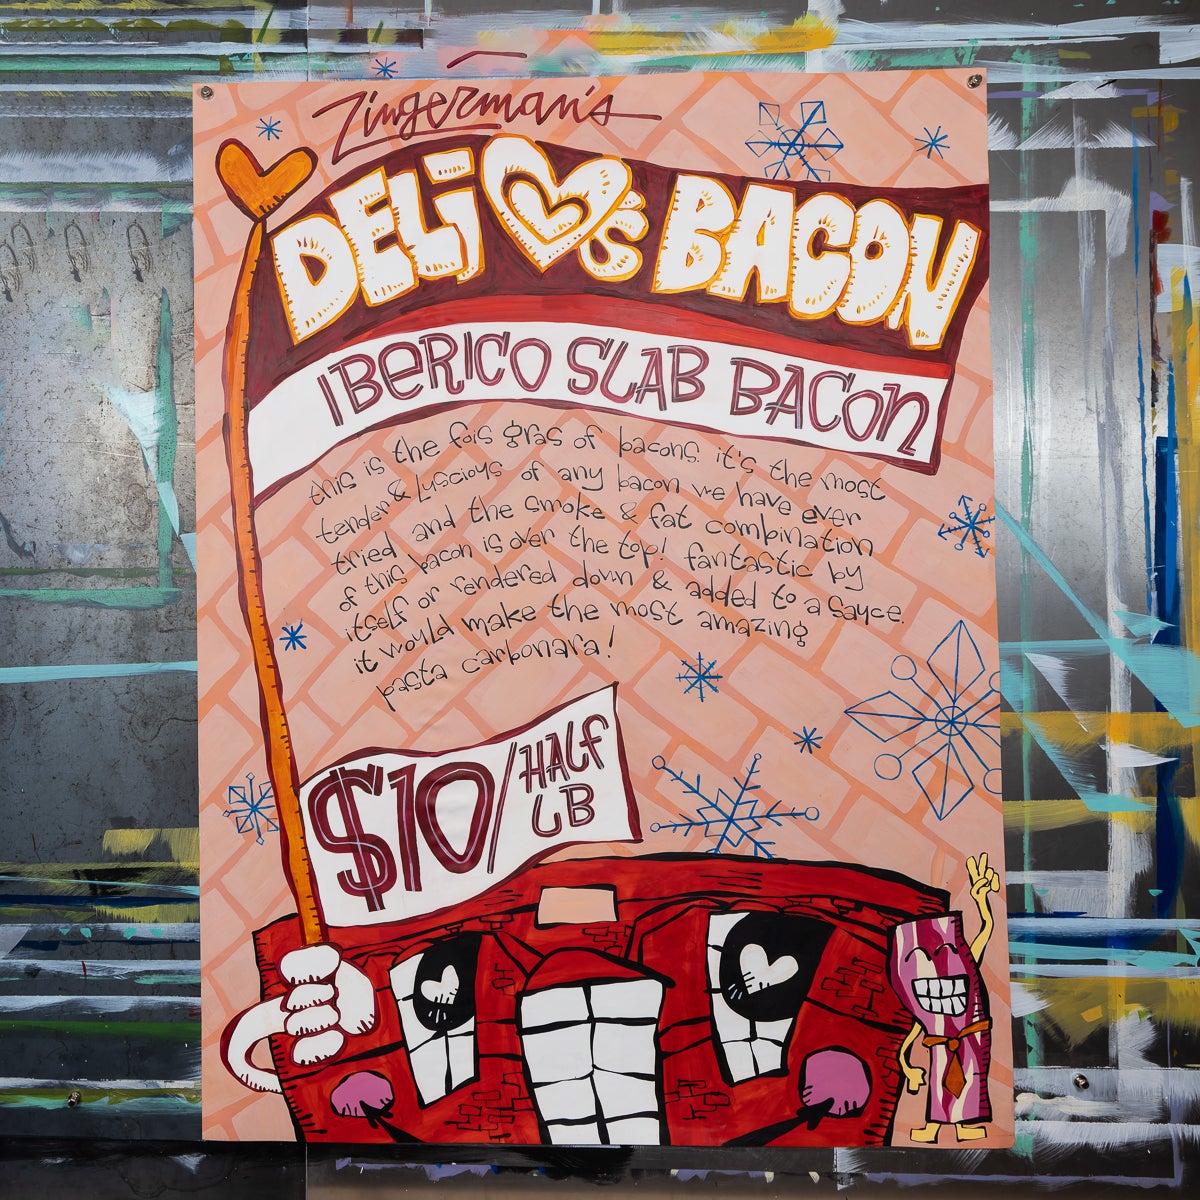 Zingerman's
DELi ♥'s BACON
IBERICO SLAB BACON
this is the fois gras of bacons. it's the most
tender & luscious of any bacon we have ever
tried and the smoke & fat combination
of this bacon is over the top! fantastic by
itself or rendered down & added to a sauce.
it would make the most amazing
pasta carbonara!
$10/HALF
LB